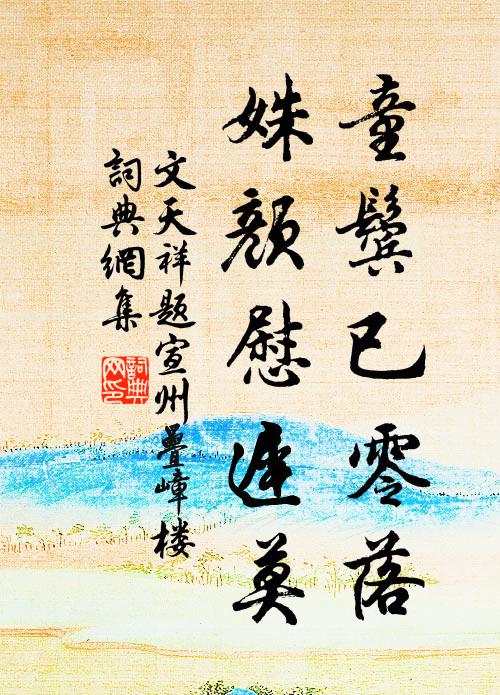 童鬓已零落
姝顏慰遲莫
文天祥题宣州疊嶂楼
詞典網集
詞典网印